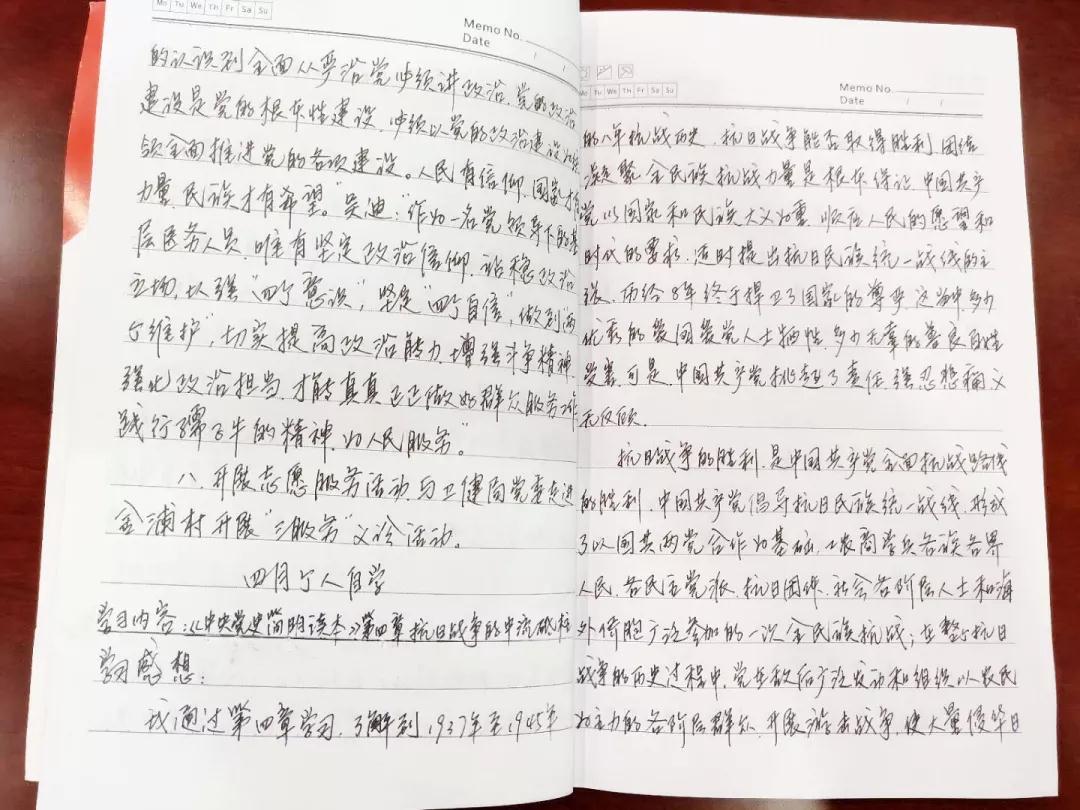 Mo Tu We Th Fr Sa Su
Memo No.
Date / /
的认识到全面从严治党必须讲政治，党的政治
建设是党的根本性建设，必须以党的政治建设为统
领全面推进党的各项建设。人民有信仰，国家才有
力量，民族才有希望。”吴迪：“作为一名党领导下的基
层医务人员，唯有坚定政治信仰，站稳政治
立场，加强“四个意识”，坚定“四个自信”，做到两
个维护”切实提高政治能力，增强斗争精神，
强化政治担当，才能真真正正做好群众服务工作
践行孺子牛的精神，为人民服务”。
八、开展志愿服务活动与卫健局党委走进
金浦村开展“三服务”义诊活动。
四月个人自学
学习内容：《中央党史简明读本》第四章抗日战争的中流砥柱
学习感想：
我通过第四章学习，了解到1937年至1945年
Mo Tu We Th Fr Sa Su
Memo No.
Date / /
的八年抗战历史，抗日战争能否取得胜利，团结
凝聚全民族抗战力量是根本保证，中国共产
党以国家和民族大义为重，顺应人民的愿望和
时代的要求，适时提出抗日民族统一战线的主
张，历经8年终于捍卫了国家的尊严，这当中，多少
优秀的爱国爱党人士牺牲，多少无辜的善良百姓
受害，可是，中国共产党挑起了责任，强忍悲痛义
无反顾。
抗日战争的胜利，是中国共产党全面抗战路线
的胜利，中国共产党倡导抗日民族统一战线，形成
了以国共两党合作为基础，工农商学兵各族各界
人民、各民主党派、抗日团体、社会各阶层人士和海
外侨胞广泛参加的一次全民族抗战；在整个抗日
战争的历史过程中，党在敌后广泛发动和组织以农民
为主力的各阶层群众，开展游击战争，使大量侵华日